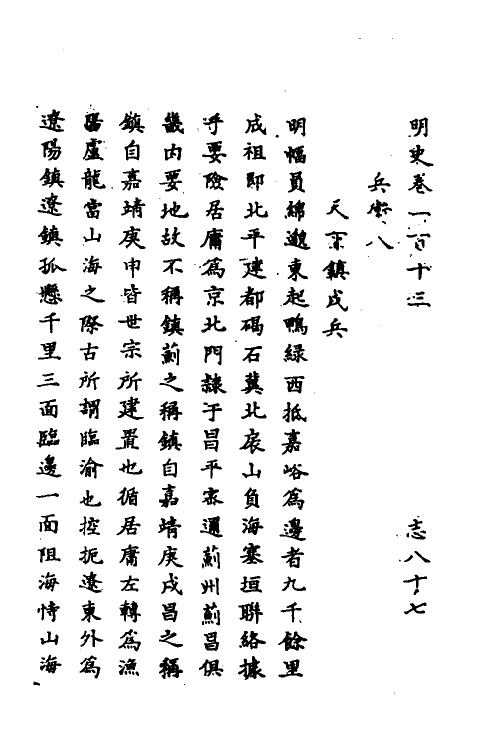 明史卷一百十三　志八十七
兵衛八
天下鎮戍兵
明幅員綿邈東起鴨綠西抵嘉峪為邊者九千餘里
成祖即北平建都碣石冀北扆山負海塞垣聯絡據
乎要險居庸為京北門隸于昌平密邇薊州薊昌俱
畿內要地故不稱鎮薊之稱鎮自嘉靖庚戌昌之稱
鎮自嘉靖庚申皆世宗所建置也循居庸左轉為漁
陽盧龍當山海之際古所謂臨渝也控扼遼東外為
遼陽鎮遼鎮孤懸千里三面臨邊一面阻海恃山海